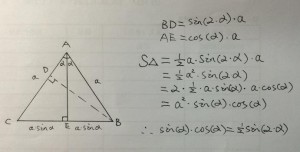 A
α α
D
a
a
C
E
B
a sinα
a sinα
BD = sin(2·α)·a
AE = cos(α)·a
S△ = ½a·sin(2·α)·a
= ½a²·sin(2·α)
= 2·½·a·sin(α)·a·cos(α)
= a²·sin(α)·cos(α)
∴ sin(α)·cos(α) = ½sin(2·α)